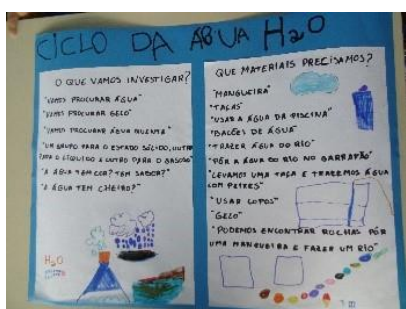 CICLO DA ÁGUA H2O
O QUE VAMOS INVESTIGAR?
"VAMOS PROCURAR ÁGUA"
"VAMOS PROCURAR GELO"
"VAMOS PROCURAR ÁGUA QUENTE"
"UM GRUPO PARA O ESTADO SÓLIDO, OUTRO
PARA O LÍQUIDO E OUTRO PARA O GASOSO"
"A ÁGUA TEM COR? TEM SABOR?"
"A ÁGUA TEM CHEIRO?"
H2O
QUE MATERIAIS PRECISAMOS?
"MANGUEIRA"
"TAÇAS"
"USAR A ÁGUA DA PISCINA"
"BALÕES DE ÁGUA"
"TRAZER ÁGUA DO RIO"
"PÔR A ÁGUA DO RIO NO GARRAFÃO"
"LEVAMOS UMA TAÇA E TRAZEMOS ÁGUA
COM PEIXES"
"USAR COPOS"
"GELO"
"PODEMOS ENCONTRAR ROCHAS PÔR
UMA MANGUEIRA E FAZER UM RIO"